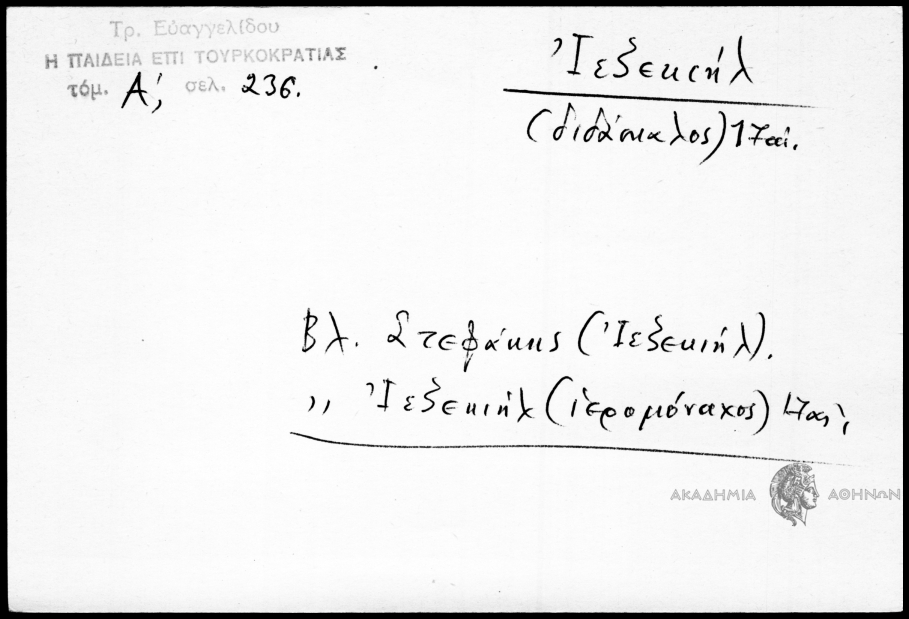 Τρ. Εὐαγγελίδου
Η ΠΑΙΔΕΙΑ ΕΠΙ ΤΟΥΡΚΟΚΡΑΤΙΑΣ
τόμ. Α΄, σελ. 236.
Ἰεζεκιήλ
(διδάσκαλος) 17 αἰ.
Βλ. Στεφάκης (Ἰεζεκιήλ).
,, Ἰεζεκιήλ (ἱερομόναχος) 17 αἰ,
ΑΚΑΔΗΜΙΑ ΑΘΗΝΩΝ